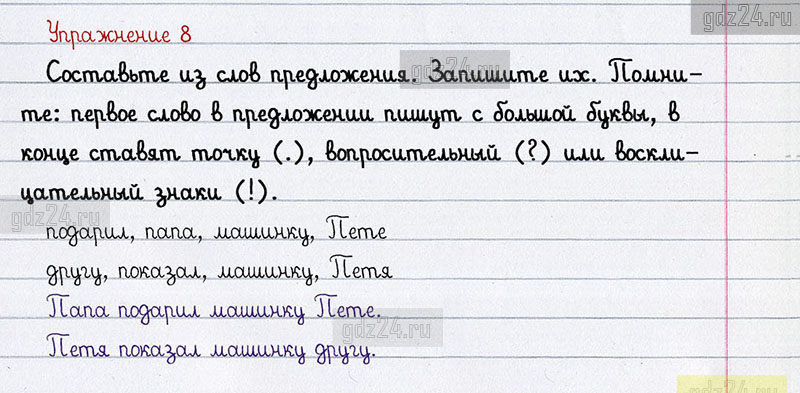 gdz24.ru
Упражнение 8
gdz24.ru
Составьте из слов предложения. Запишите их. Помни-
те: первое слово в предложении пишут с большой буквы, в
конце ставят точку (.), вопросительный (?) или воскли-
цательный знаки (!).
gdz24.ru
подарил, папа, машинку, Пете
другу, показал, машинку, Петя
Папа подарил машинку Пете.
gdz24.ru
Петя показал машинку другу.
gdz24.ru